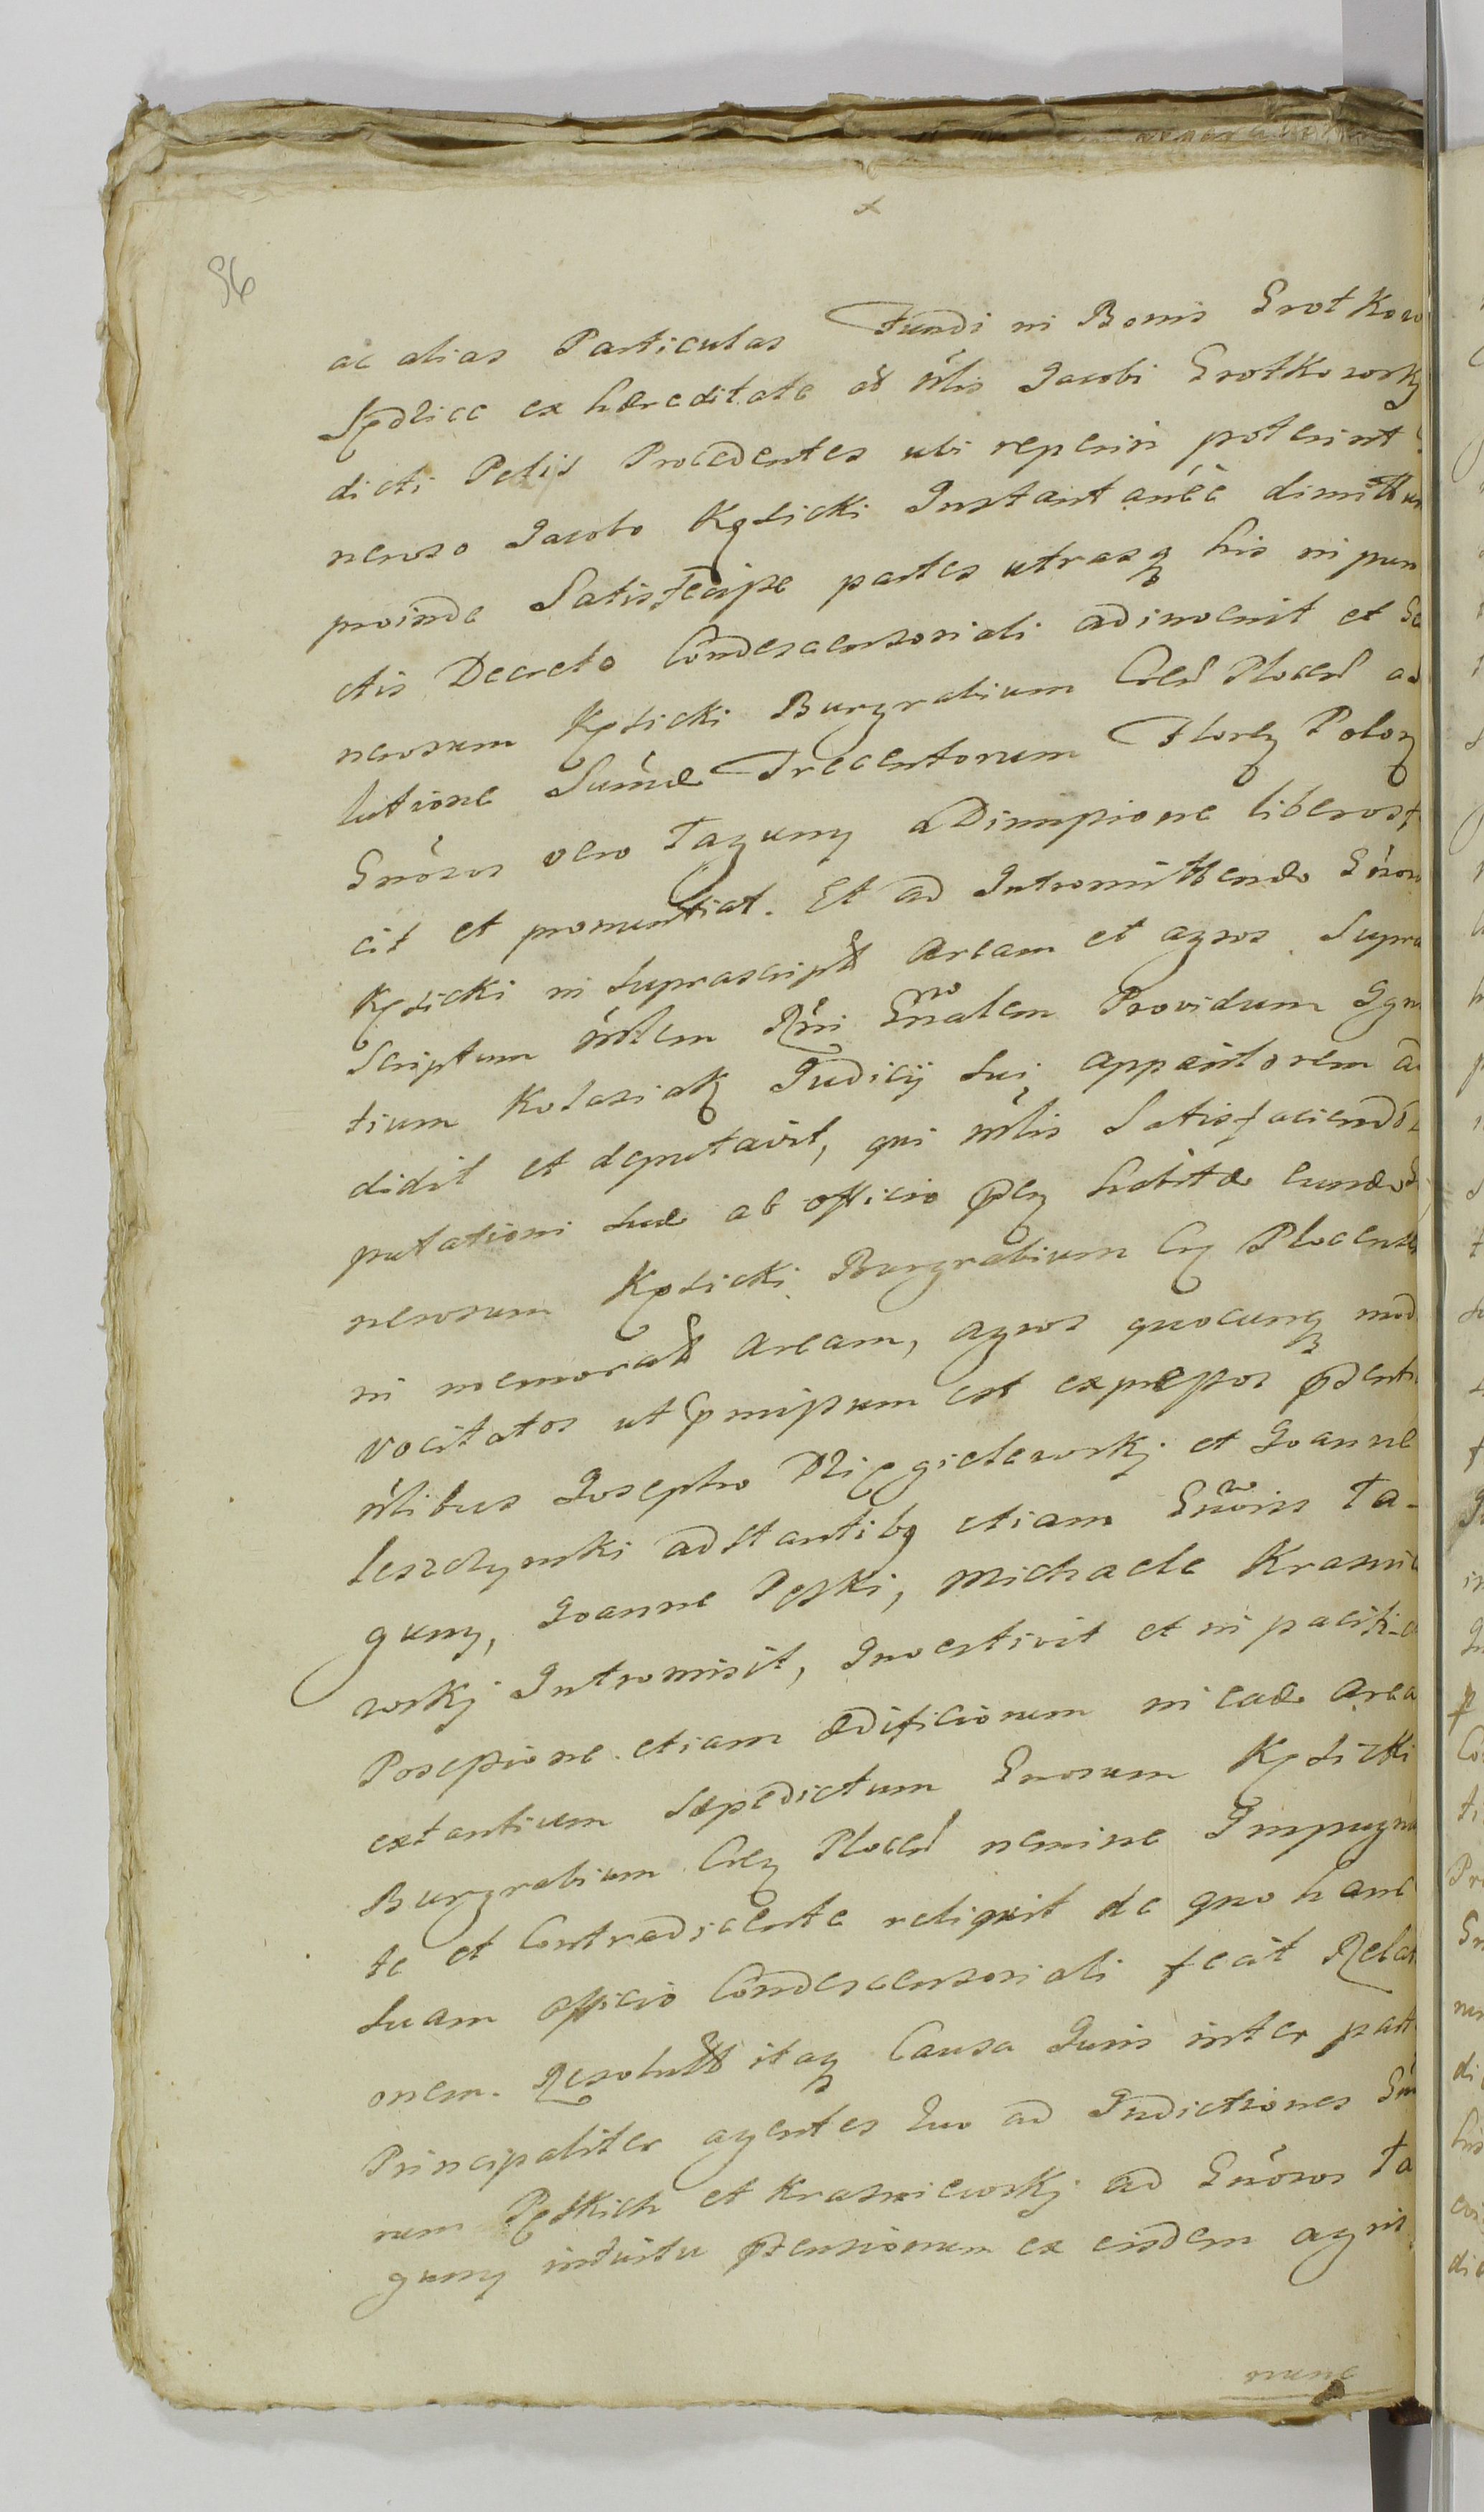 96
ac alias Particulas Fundi in Bonis Grotkow
Sędzice ex hæreditate ad Mlis Jacobi Grotkowsky
dicti Pelis Procedentes ubi reperiri poterint
neroso Jacobo Kęsicki Instantanée dimittun
proinde Satisfecisse partes utrasq his in pun
ctis Decreto Condescensoriali adinvenit et Ge
nerosum Kęsicki Burgrabium Cren Plocen ad
lutione Sum̃æ Trecentorum Floren Polon
Gnosos vero Taguny ad Divisione liberos f
cit et pronuntiat. Et ad Intromittendo Gnosu
Kęsicki in suprascript Aream et agros Supra
Scriptum Mlem Rñi Gnalem Providum Igna
tium Kolasiak Judicij sui apparitorem ad
didit et deputavit, qui Mlis Satisfaciendo
putationi suæ ab officio habitæ eunde G
nerosum Kęsicki Burgrabium Plocense
in memorat Aream, agros quocunq mod
vocitatos ut præmissum est expressos
Mlibus Josepho Dzięgielewskj et Joanne
Leszczynski adstantibq etiam Gnosis Ta-
guny, Joanne Pęski, Michaele Krasnie
wskj Intromisit, Investivit et in pacifica
Possessione etiam ædificiorum in eade Area
extantium Sæpedictum Gnosum Kęsicki
Burgrabium Plocen nemine Impugna
te et Contradicente reliquit de quo hanc
suam officio Condescensoriali fecit Relati
onem. itaq Causa Juris inter part
Principaliter agentes quo ad Indictiones Gn
rum Pęskich et Krasniewskj ad Gnosos Ta
guny intuitu ptensionum ex eisdem agris
nunc